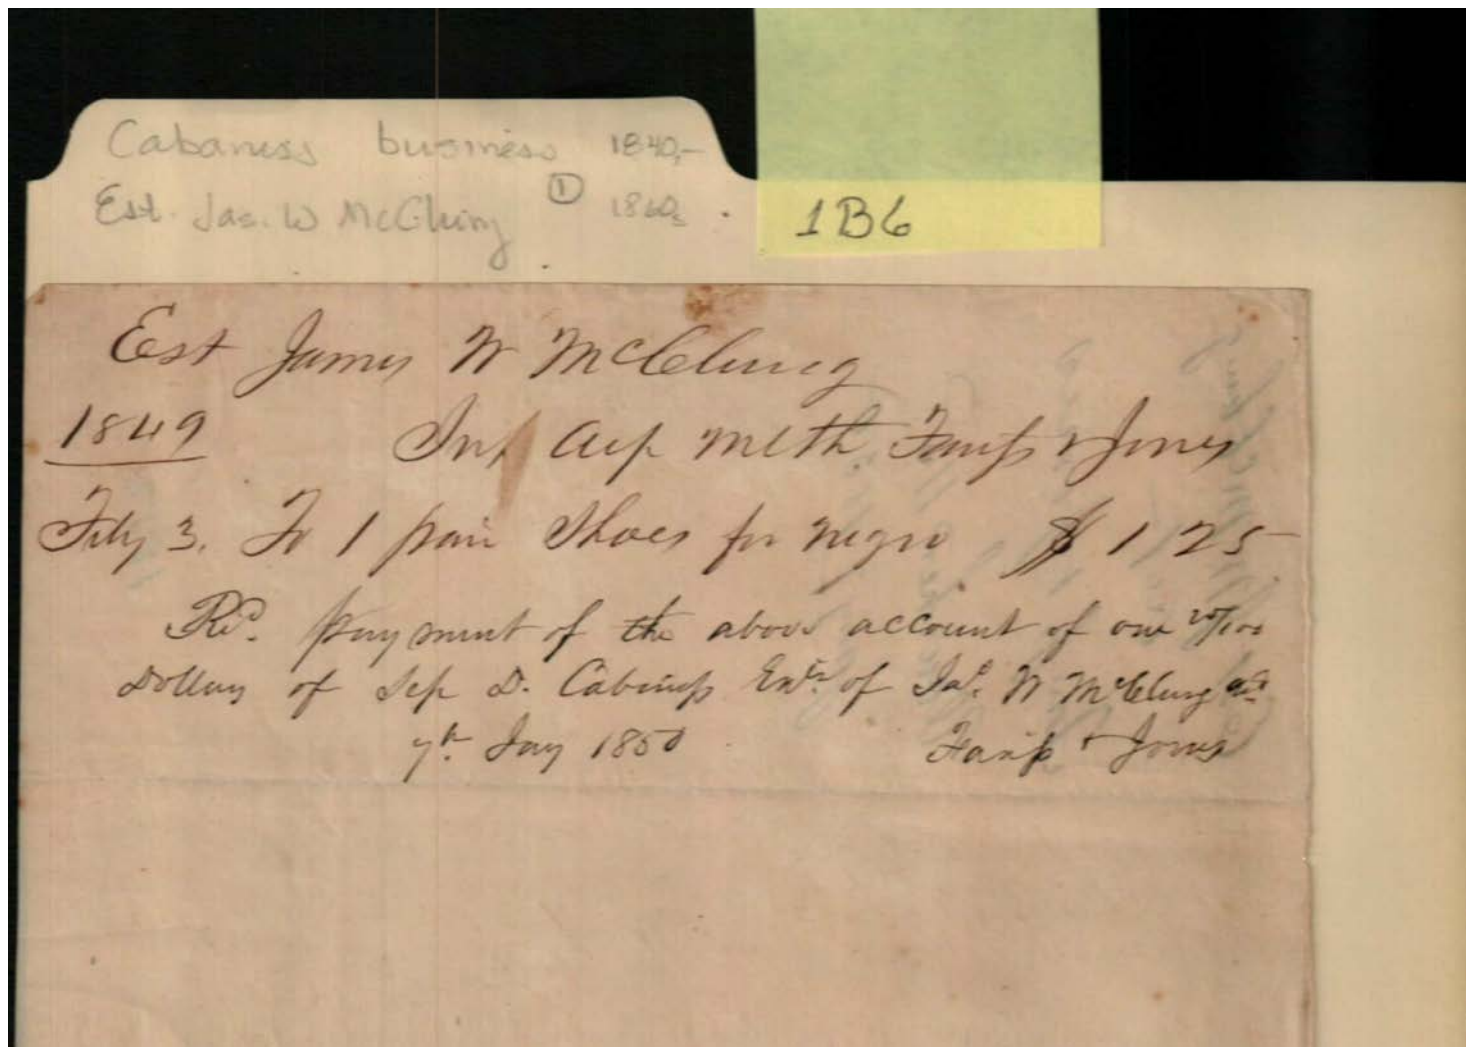 Cabaness business 1840,-
Est. Jas. W McClung ① 1860s
1B6
Est James W McClung
1849 In a/c with & Jones
Feby 3. To 1 pair Shoes for negro $ 1 25
Recd. payment of the above account of one 25/100
Dollars of Sep D. Cabiness Exr. of Jas. W McClung
7th Jany 1850 & Jones